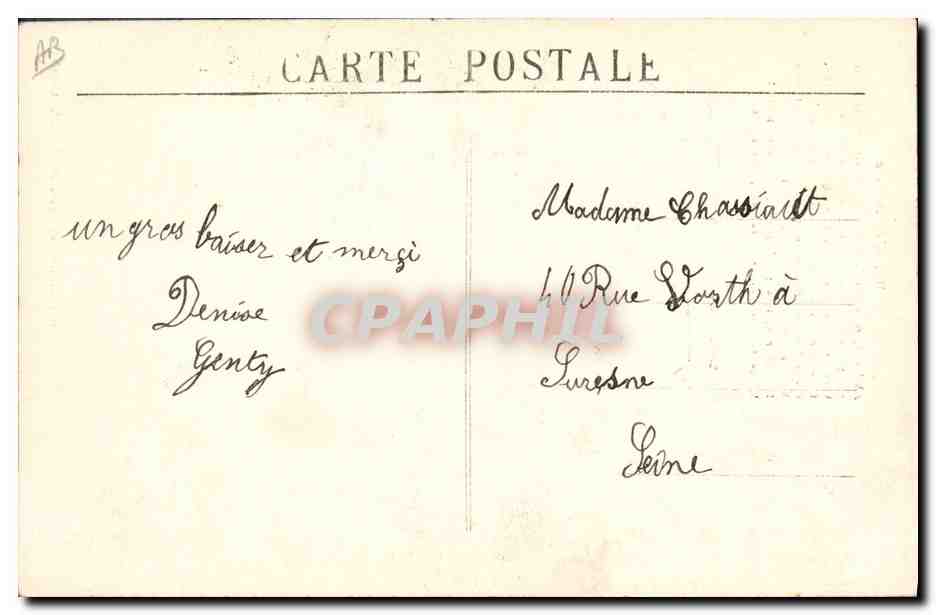 AB
CARTE POSTALE
un gros baiser et merçi
Denise
Genty
Madame Chassiault
40 Rue Worth à
Suresne
Seine
CPAPHIL